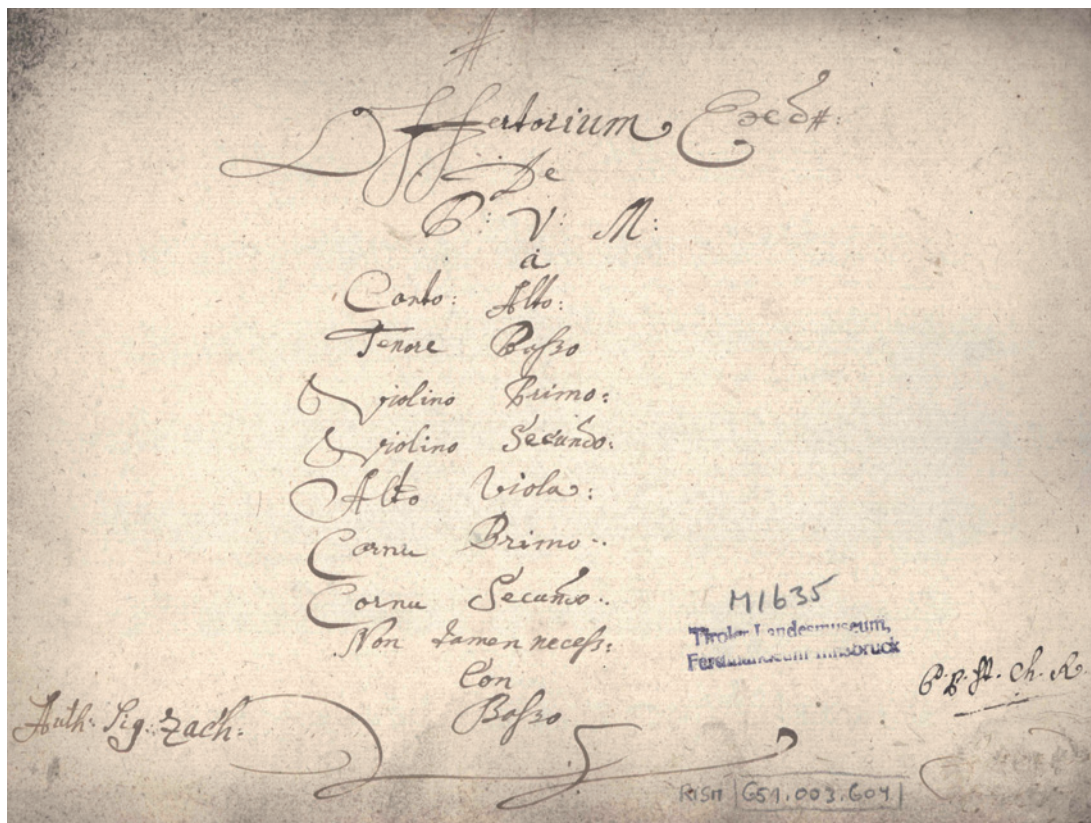 #
Offertorium Ex D#:
De
B: V: M:
à
Canto: Alto:
Tenore Basso
Violino Primo:
Violino Secundo:
Alto Viola:
Cornu Primo:
Cornu Secundo:
Non tamen necess:
Con
Basso
Auth: Sig: Zach:
M1635
Tiroler Landesmuseum,
Ferdinandeum Innsbruck
P. P. St. Ch. R.
RISM 651.003.604